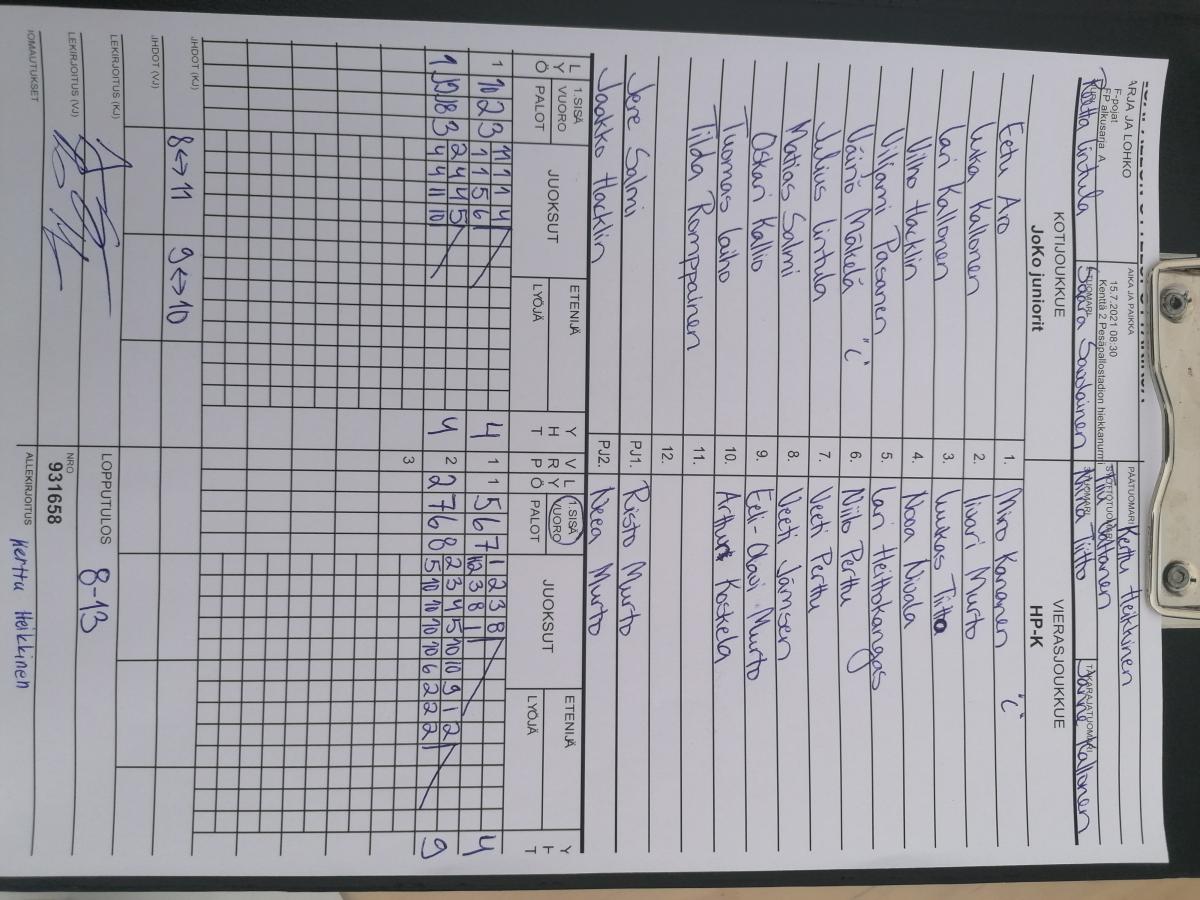 ARJA JA LOHKO
F-pojat
FP alkusarja A
AIKA JA PAIKKA
15.7.2021 08:30
Kenttä 2 Pesäpallostadion hiekkanurmi
PÄÄTUOMARI Kerttu Heikkinen
SYÖTTÖTUOMARI
Reetta Lintula
Saara Savolainen
Minna Tiitto
TAKARAJATUOMARI
Janne Kallonen
KOTIJOUKKUE
JoKo juniorit
VIERASJOUKKUE
HP-K
Eetu Aro 1. Miro Kananen "C"
Luka Kallonen 2. Iivari Murto
Lari Kallonen 3. Luukas Tiitto
Vilho Hacklin 4. Nooa Nivala
Viljami Pasanen 5. Lari Heittokangas
Väinö Mäkelä "C" 6. Niilo Perttu
Julius Lintula 7. Veeti Perttu
Matias Salmi 8. Veeti Jämsen
Oskari Kallio 9. Eeli-Olavi Murto
Tuomas Laiho 10. Arthur Koskela
Tilda Romppainen 11.
12.
Jere Salmi PJ1. Risto Murto
Jaakko Hacklin PJ2. Neea Murto
L Y Ö 1.SISÄ VUORO PALOT JUOKSUT ETENIJÄ LYÖJÄ Y H T V R P L Y Ö 1.SISÄ VUORO PALOT JUOKSUT ETENIJÄ LYÖJÄ Y H T
11 1 1 4 1 2 3 8
1 10 2 3 1 1 5 6 4 1 1 5 6 7 10 3 8 1 4
2 4 4 5 2 3 4 5 10 10 9 1 2
1 9 8 3 4 4 11 10 4 2 2 7 6 8 5 10 10 10 10 6 2 2 2 9
3
IHDOT (KJ) 8↔11 9↔10
IHDOT (VJ)
LEKIRJOITUS (KJ)
LOPPUTULOS 8-13
LEKIRJOITUS (VJ)
NRO
931658
IOMAUTUKSET
ALLEKIRJOITUS Kerttu Heikkinen